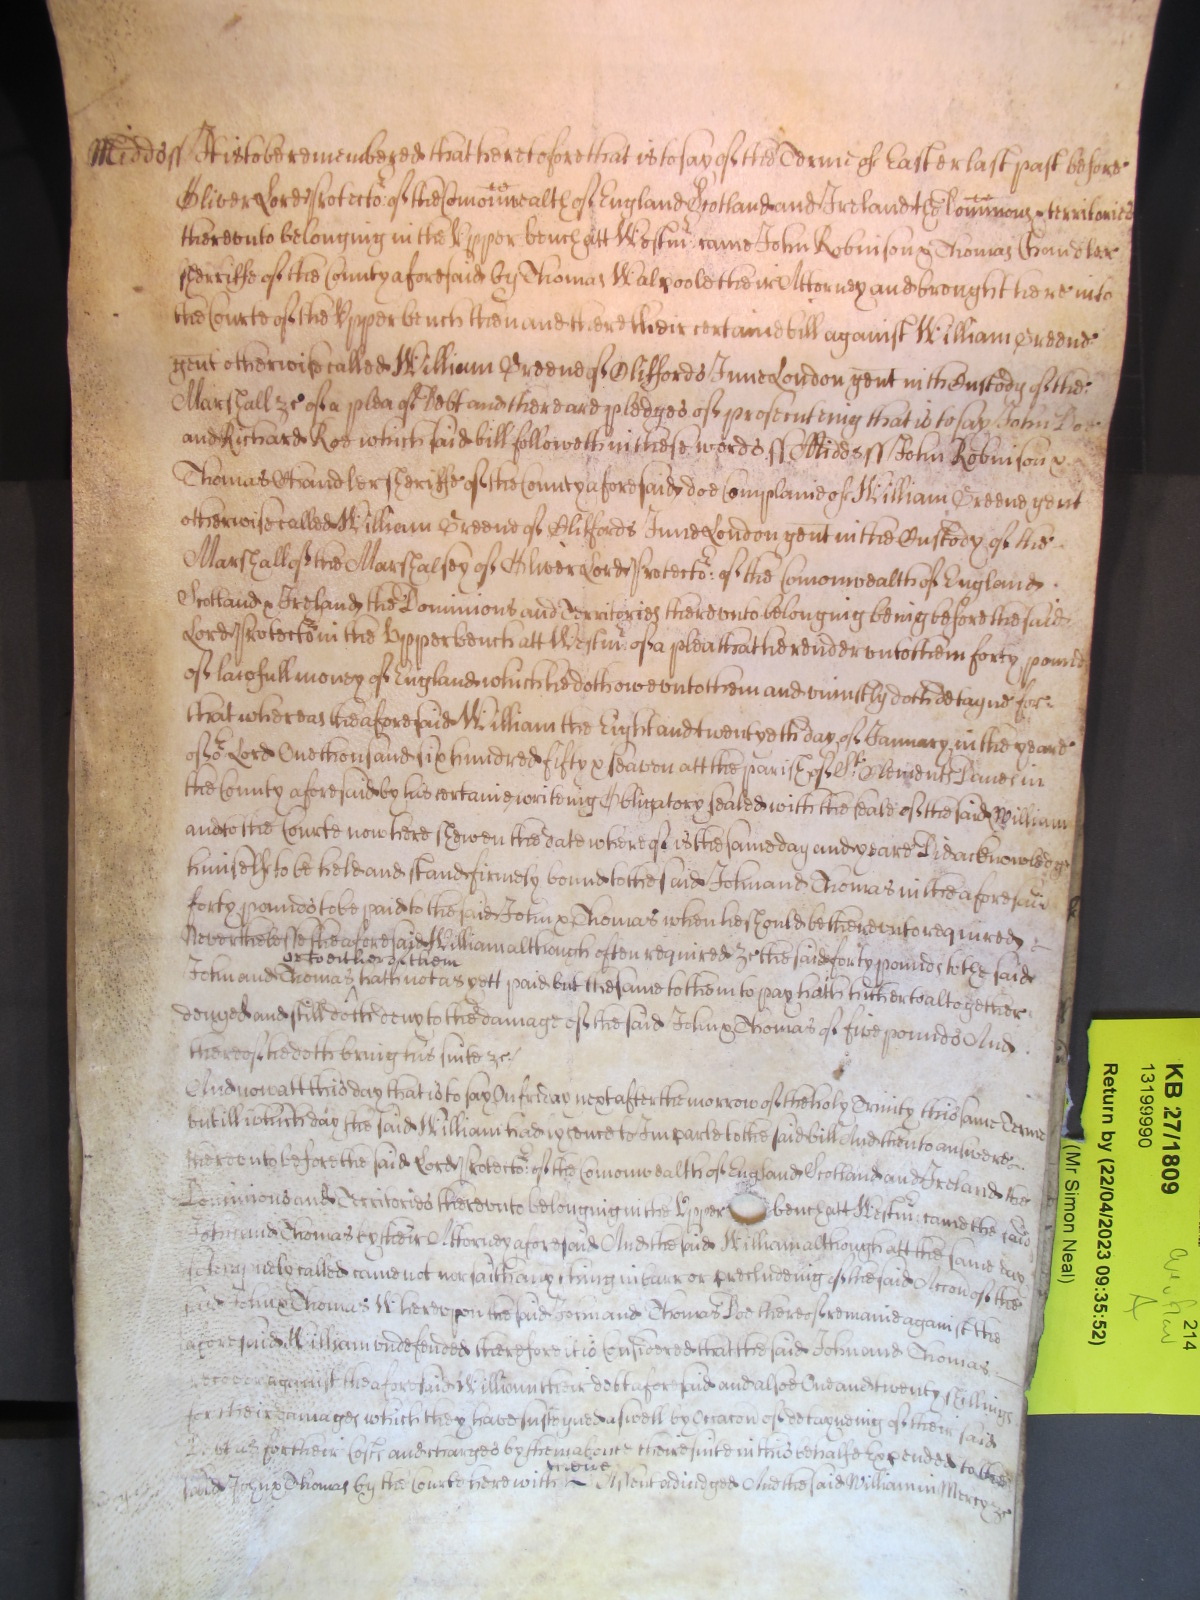 Midds ss It is to be remembered that heretofore that is to say of the Terme of Easter last past before
Oliver Lord Protector of the Comonwealth of England Scotland and Ireland & the Dominions & territories
thereunto belonging in the Upper bench att Westmr: came John Robinson & Thomas Chandler
sherriffe of the County aforesaid by Thomas Walpoole their Attorney and brought here into
the Courte of the Upper bench then and there their certaine bill against William Greene
gent otherwise called William Greene of Cliffords Inne London gent in the Custody of the
Marshall &c of a plea of Debt and there are pledges of prosecuteing that is to say John Doe
and Richard Roe which said bill followeth in these words ss Midds ss John Robinson &
Thomas Chandler sheriffe of the County aforesaid doe Complaine of William Greene gent
otherwise called William Greene of Cliffords Inne London gent in the Custody of the
Marshall of the Marshalsey of Oliver Lord Protector: of the Comonwealth of England
Scotland & Ireland & the Dominions and Territories thereunto belonging being before the said
Lord Protector in the Upper bench att Westmr: of a plea that he render unto them forty pounds
of lawfull money of England which he doth owe unto them and uniustly doth detayne for
that whereas the aforesaid William the Eight and twentyeth day of January in the yeare
of or Lord One thousand six hundred fifty & seaven att the parish of St: Clement Danes in
the County aforesaid by his certaine writeing Obligatory sealed with the seale of the said William
and to the Courte now here shewen the date whereof is the same day and yeare Did acknowledge
himselfe to be held and stand firmely bound to the said John and Thomas in the aforesaid
forty pounds to be paid to the said John & Thomas when he should be thereunto required
Neverthelesse the aforesaid William although often required &c the said forty pounds to the said
or to either of them
John and Thomas hath not as yett paid but the same to them to pay hath hitherto altogether
denyed and still doth deny to the damage of the said John & Thomas of five pounds And
thereof he doth bring his suite &c
And now att this day that is to say On friday next after the morrow of the holy Trinity this same Terme
untill which day the said William had lycence to Imparle to the said bill And then to answere
thereunto before the said Lord Protector: of the Comonwealth of England Scotland and Ireland the
Dominions and Territories thereunto belonging in the Upper bench att Westmr: came the said
John and Thomas by their Attorney aforesaid And the said William although att the same day
solempnely called came not nor saith any thing in barr or precludeing of the said Accon of the
said John & Thomas Whereupon the said John and Thomas Doe thereof remaine against the
aforesaid William undefended therefore it is Considered that the said John and Thomas
recover against the aforesaid William their debt aforesaid and alsoe One and twenty shillings
for their damages which they have susteyned aswell by Occacon of detayneing of their said
Debt as for their Costs and charges by them about their suite in this behalfe Expended to the
said John & Thomas by the Courte here with Assent adiudged And the said William in Mercy &c
KB 27/1809
13199990
Return by (22/04/2023 09:35:52)
(Mr Simon Neal)
214